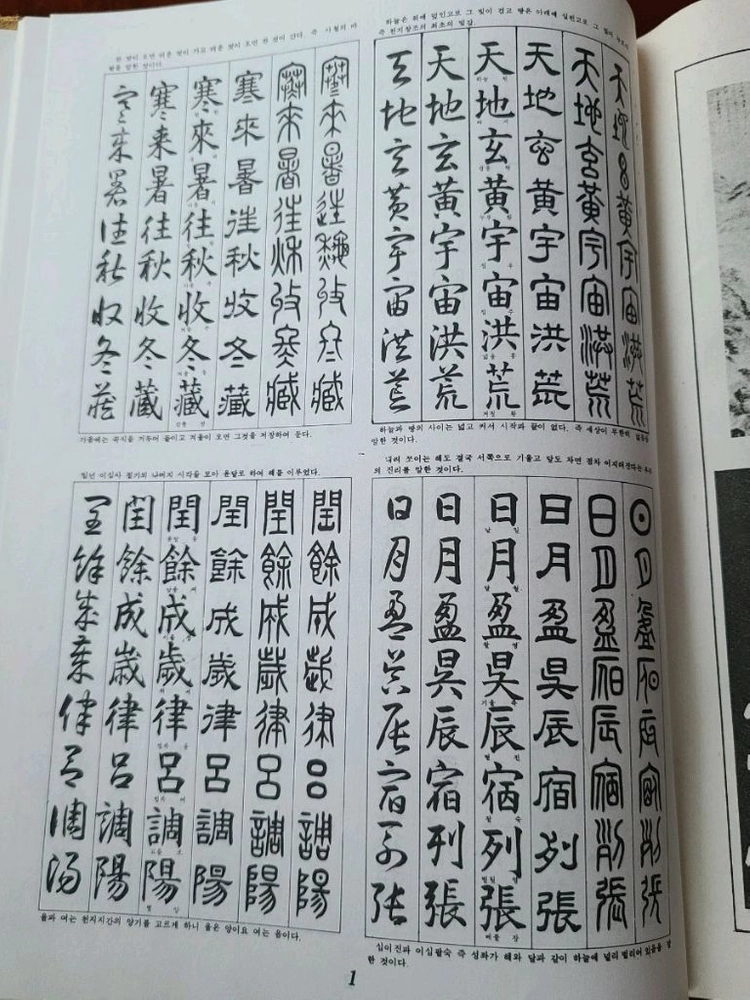 하늘은 위에 덮인고로 그 빛이 검고 땅은 아래에 실린고로 그 빛이
즉 천지창조의 최초의 빛깔.
天地玄黃宇宙洪荒
天地玄黃宇宙洪荒
天地玄黃宇宙洪荒
天地玄黃宇宙洪荒
天地玄黃宇宙洪荒
天地玄黃宇宙洪荒
하늘과 땅의 사이는 넓고 커서 시작과 끝이 없다. 즉 세상이 무한히 넓음을
말한 것이다.
내리 쪼이는 해도 결국 서쪽으로 기울고 달도 차면 점차 이지러진다는 우주
의 진리를 말한 것이다.
日月盈昃辰宿列張
日月盈昃辰宿列張
日月盈昃辰宿列張
日月盈昃辰宿列張
日月盈昃辰宿列張
日月盈昃辰宿列張
십이진과 이십팔숙 즉 성좌가 해와 달과 같이 하늘에 널리 벌리어 있음을 말
한 것이다.
찬 것이 오면 더운 것이 가고 더운 것이 오면 찬 것이 간다. 즉 사철의 바
뀜을 말한 것이다.
寒來暑往秋收冬藏
寒來暑往秋收冬藏
寒來暑往秋收冬藏
寒來暑往秋收冬藏
寒来暑往秋收冬藏
寒来暑往秋收冬藏
가을에는 곡식을 거두어 들이고 겨울이 오면 그것을 저장하여 둔다.
일년 이십사 절기의 나머지 시각을 모아 윤달로 하여 해를 이루었다.
閏餘成歲律呂調陽
閏餘成歲律呂調陽
閏餘成歲律呂調陽
閏餘成歲律呂調陽
閏餘成歲律呂調陽
閏餘成歲律呂調陽
율과 여는 천지지간의 양기를 고르게 하니 율은 양이요 여는 음이다.
1